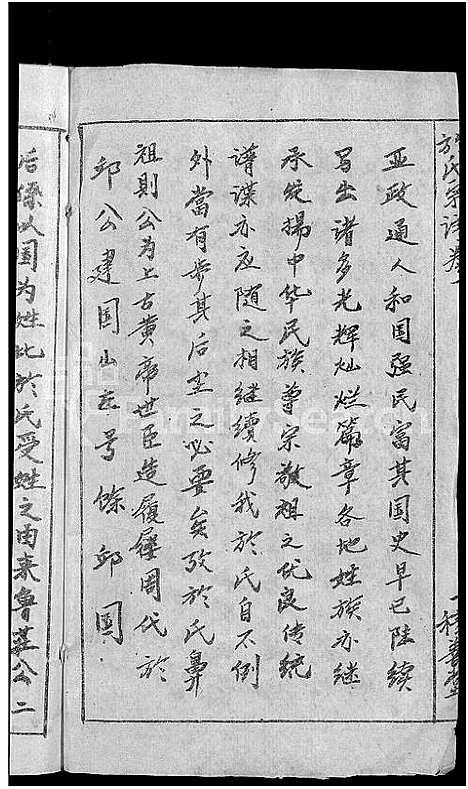 於氏宗谱卷一
一种善堂
亚政通人和国强民富其国史早已陆续
写出诸多光辉灿烂篇章各地姓族亦继
承发揚中华民族尊宗敬祖之优良传统
谱谍亦应随之相继續修我於氏自不例
外當有步其后尘之必要矣攷於氏鼻
祖則公为上古黄帝世臣造履屦周代於
邱公建国山左号條邱国
后孫以国为姓此於氏受姓之由来魯莊公二